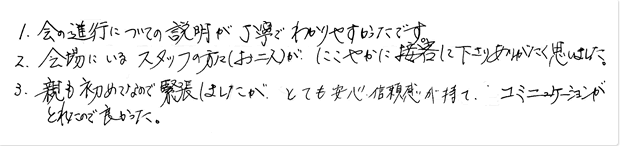 1. 会の進行についての説明が丁寧でわかりやすかったです。
2. 会場にいるスタッフの方々(お二人)が にこやかに接客して下さりありがたく思いました。
3. 親も初めてなので緊張しましたが、とても安心、信頼感が持て、コミュニケーションが
とれたので良かった。